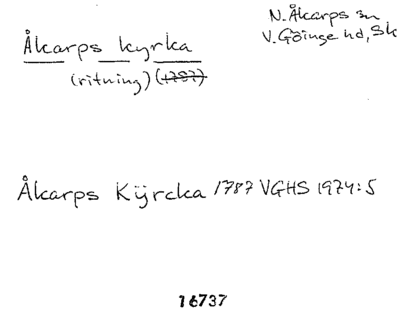 Åkarps kyrka
(ritning) (1787)
N. Åkarps sn
V. Göinge hd, Sk
Åkarps Kÿrcka 1787 VGHS 1974:5
16737